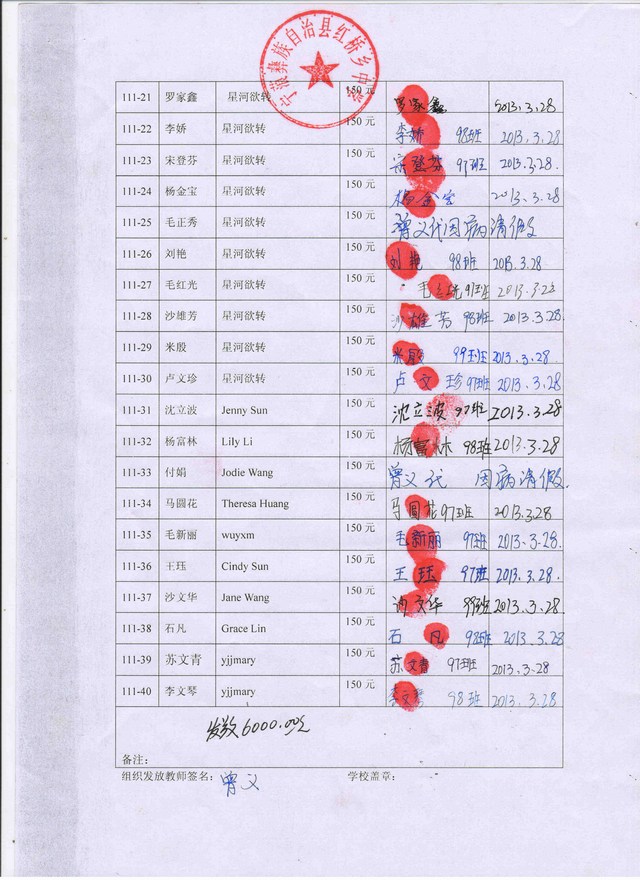 宁蒗彝族自治县红桥乡中学
111-21 罗家鑫 星河欲转 150 元 罗家鑫 2013.3.28
111-22 李娇 星河欲转 150 元 李娇 98班 2013.3.28
111-23 宋登芬 星河欲转 150 元 宋登芬 97班 2013.3.28.
111-24 杨金宝 星河欲转 150 元 杨金宝 2013.3.28
111-25 毛正秀 星河欲转 150 元 曾义代因病请假
111-26 刘艳 星河欲转 150 元 刘艳 98班 2013.3.28
111-27 毛红光 星河欲转 150 元 毛 97班 2013.3.28
111-28 沙雄芳 星河欲转 150 元 沙雄芳 98班 2013.3.28
111-29 米殷 星河欲转 150 元 米殷 99班 2013.3.28
111-30 卢文珍 星河欲转 150 元 卢文珍 97班 2013.3.28
111-31 沈立波 Jenny Sun 150 元 沈立波 97班 2013.3.28
111-32 杨富林 Lily Li 150 元 杨富林 98班 2013.3.28
111-33 付娟 Jodie Wang 150 元 曾义代 因病请假.
111-34 马圆花 Theresa Huang 150 元 马圆花 97班 2013.3.28
111-35 毛新丽 wuyxm 150 元 毛新丽 97班 2013.3.28.
111-36 王珏 Cindy Sun 150 元 王珏 97班 2013.3.28.
111-37 沙文华 Jane Wang 150 元 沙文华 99班 2013.3.28
111-38 石凡 Grace Lin 150 元 石凡 98班 2013.3.28
111-39 苏文青 yjjmary 150 元 苏文青 97班 2013.3.28
111-40 李文琴 yjjmary 150 元 李文琴 98班 2013.3.28
发数6000.00元
备注：
组织发放教师签名： 曾义 学校盖章：